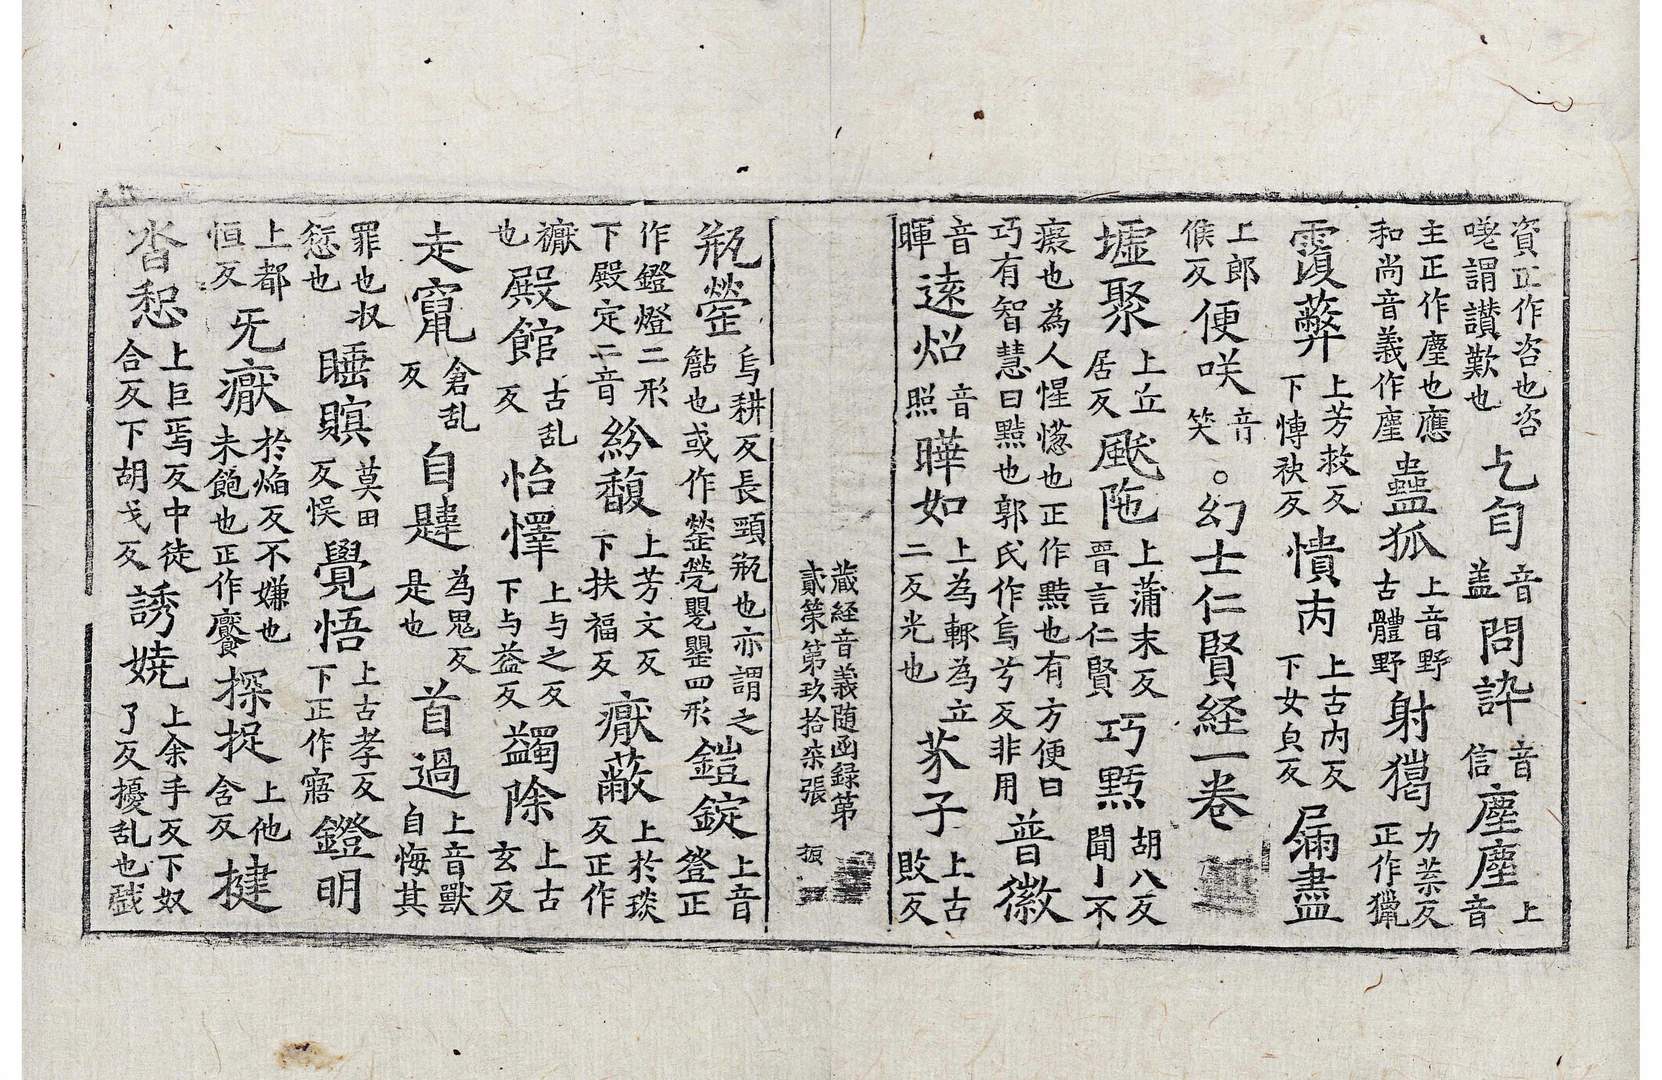 資正作咨也咨嗟謂讃歎也乞匄音盖問誶音信塵塵上音
主正作塵也應和尚音義作塵蠱狐上音野古體野射獦力葉反正作獵
覆蔽上芳救反下愽袂反憒丙上古内反下女皃反屚盡
上郎候反便咲音笑。幻士仁賢経一卷
墟聚上丘居反颰陁上蒲末反晉言仁賢巧㸃胡八反聞丨不
癡也為人惺憽也正作㸃也有方便曰巧有智慧曰㸃也郭氏作烏兮反非用普徽
音暉逺炤音照曄如上為輒為立二反光也芥子上古敗反
藏経音義随函録第貳策第玖拾柒張 振
瓶罃烏耕反長頸瓶也亦謂之也或作罃四形鎧錠上音登正
作鐙燈二形下殿定二音紛馥上芳文反下扶福反蔽上於琰反正作
也殿館古乱反怡懌上与之反下与益反蠲除上古玄反
走竄倉乱反自韙為鬼反是也首過上音獸自悔其
罪也愆也睡瞑莫田反悮覺悟上古孝反下正作寤鐙明
上都恒反旡猒於焰反不嫌也未飽也正作饜探捉上他含反揵
沓惒上巨焉反中徒合反下胡戈反誘嬈上余手反下奴了反擾乱也戲